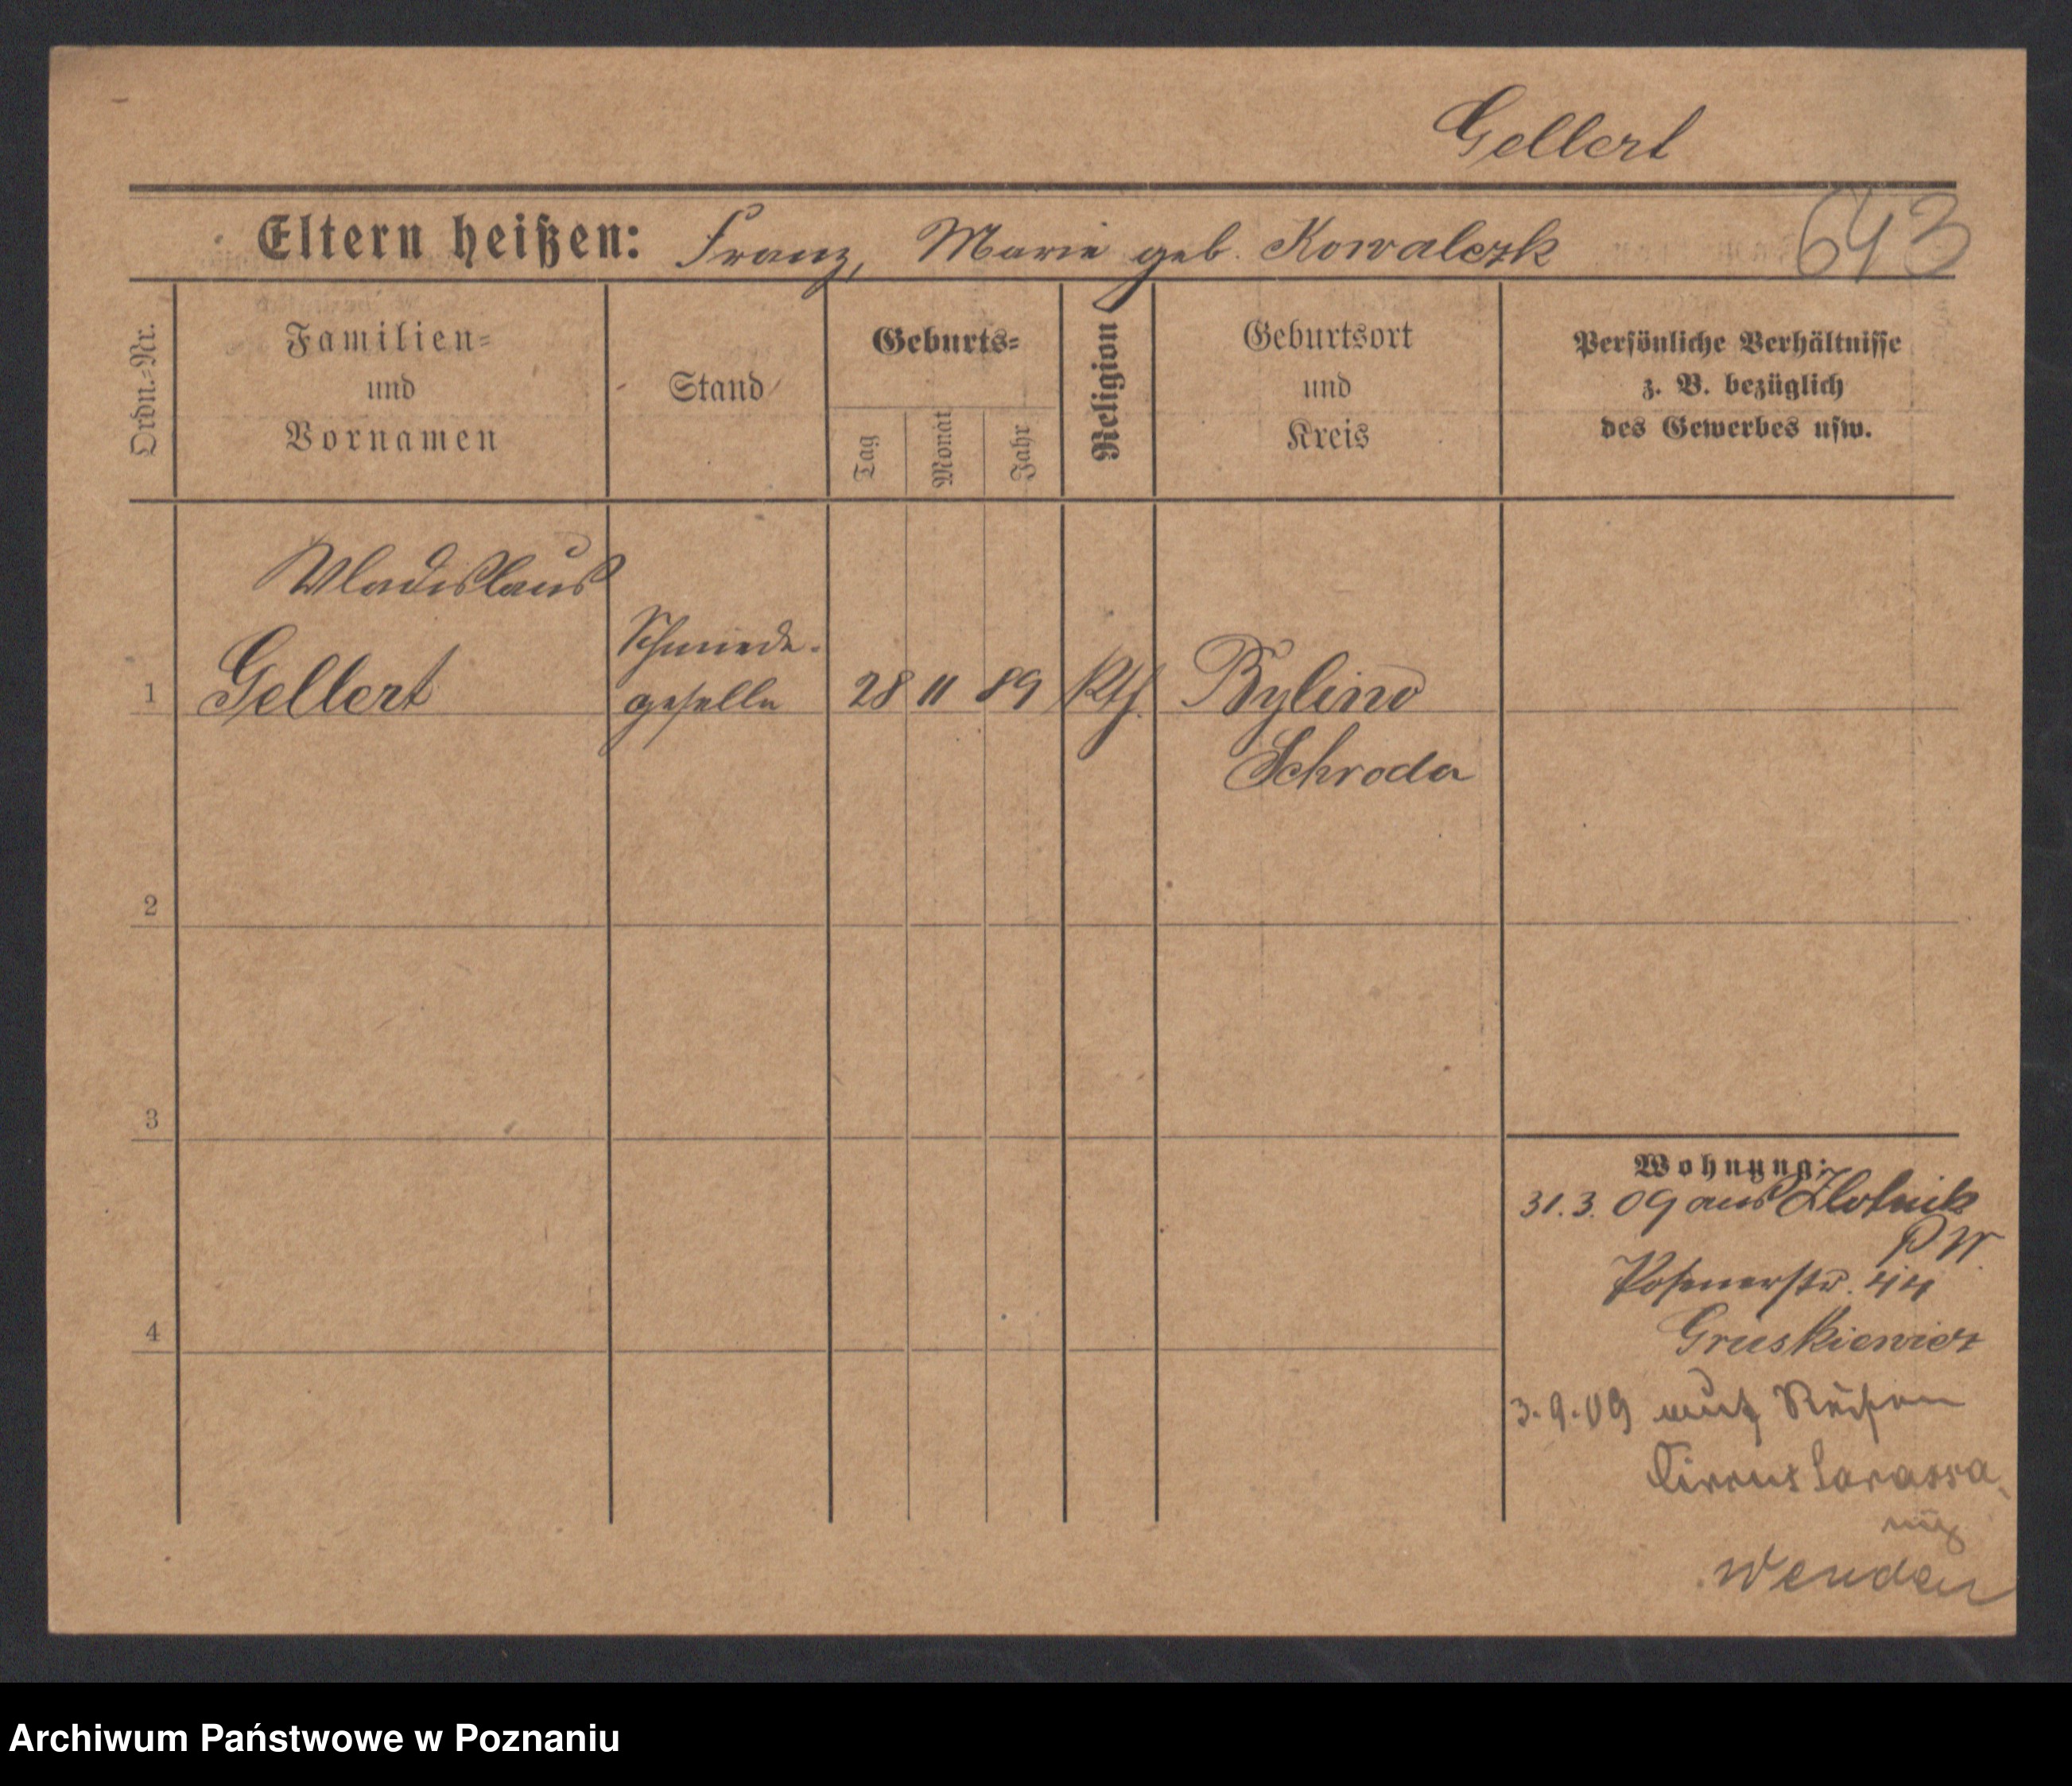 Gellert
Eltern heißen: Franz, Marie geb. Kowalczk
643
Ordn.-Nr.
Familien-
und
Vornamen
Stand
Geburts-
Tag
Monat
Jahr
Religion
Geburtsort
und
Kreis
Persönliche Verhältnisse
z. B. bezüglich
des Gewerbes usw.
Wladislaus
1 Gellert
Schmiede-
geselle
28 11 89 Kth.
Bylino
Schroda
2
3
4
Wohnung:
31. 3. 09 aus Zlotnik
P. W.
Posenerstr. 44
Gruskiewicz
3.9.09 auf Reisen
Circus Sarassa
Archiwum Państwowe w Poznaniu